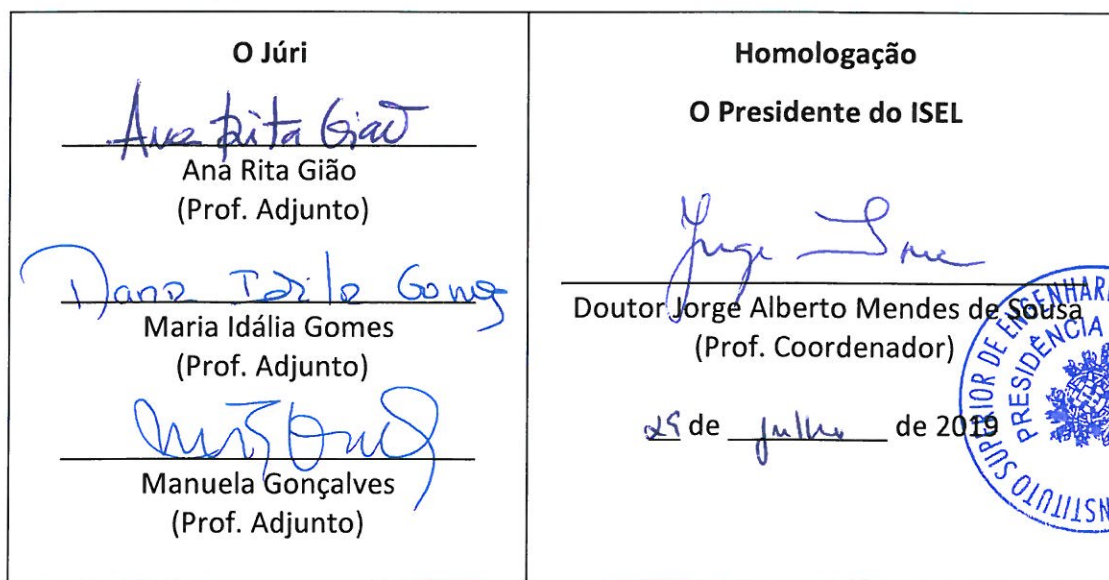 O Júri
Ana Rita Gião
Ana Rita Gião
(Prof. Adjunto)
Maria Idália Gomes
Maria Idália Gomes
(Prof. Adjunto)
Manuela Gonçalves
(Prof. Adjunto)
Homologação
O Presidente do ISEL
Jorge Sousa
Doutor Jorge Alberto Mendes de Sousa
(Prof. Coordenador)
de julho de 2019
INSTITUTO SUPERIOR DE ENGENHARI
PRESIDÊNCIA